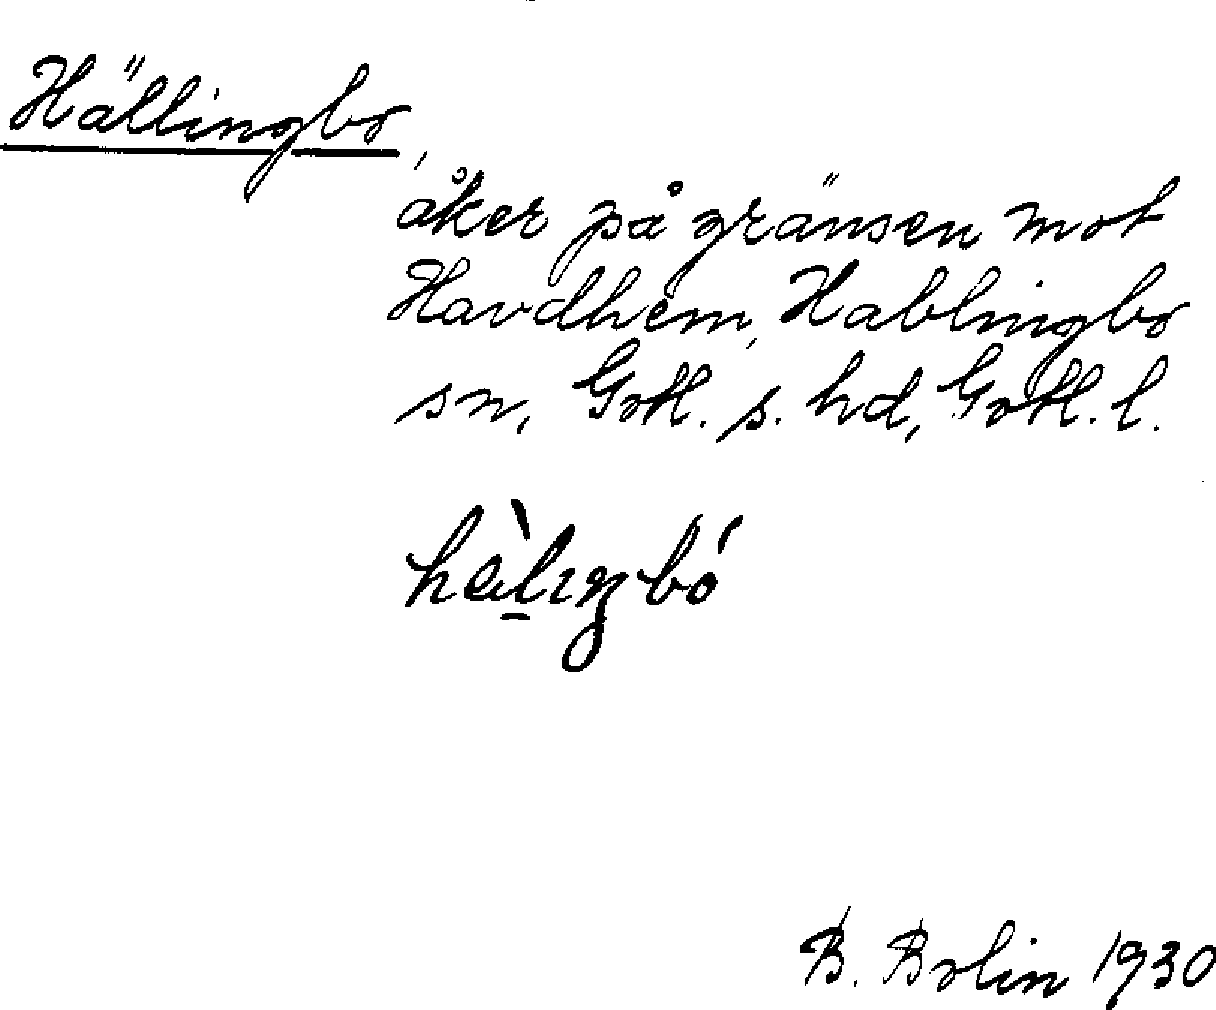 Hällingbo,
åker på gränsen mot
Havdhem, Hablingbo
sn, Gotl. s. hd, Gotl. l.
hälıŋbó
B. Bolin 1930